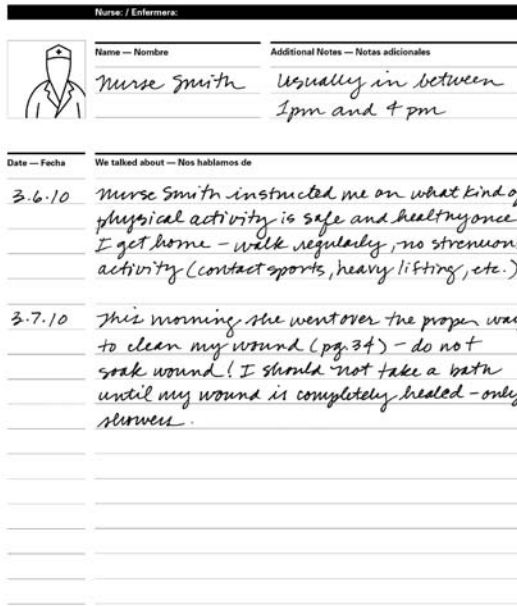 Nurse: / Enfermera:
Name — Nombre
Additional Notes — Notas adicionales
Nurse Smith
Usually in between
1pm and 4 pm
Date — Fecha
We talked about — Nos hablamos de
3.6.10
Nurse Smith instructed me on what kind of
physical activity is safe and healthy once
I get home – walk regularly, no strenuous
activity (contact sports, heavy lifting, etc.)
3.7.10
This morning she went over the proper way
to clean my wound (pg. 34) – do not
soak wound! I should not take a bath
until my wound is completely healed – only
showers.